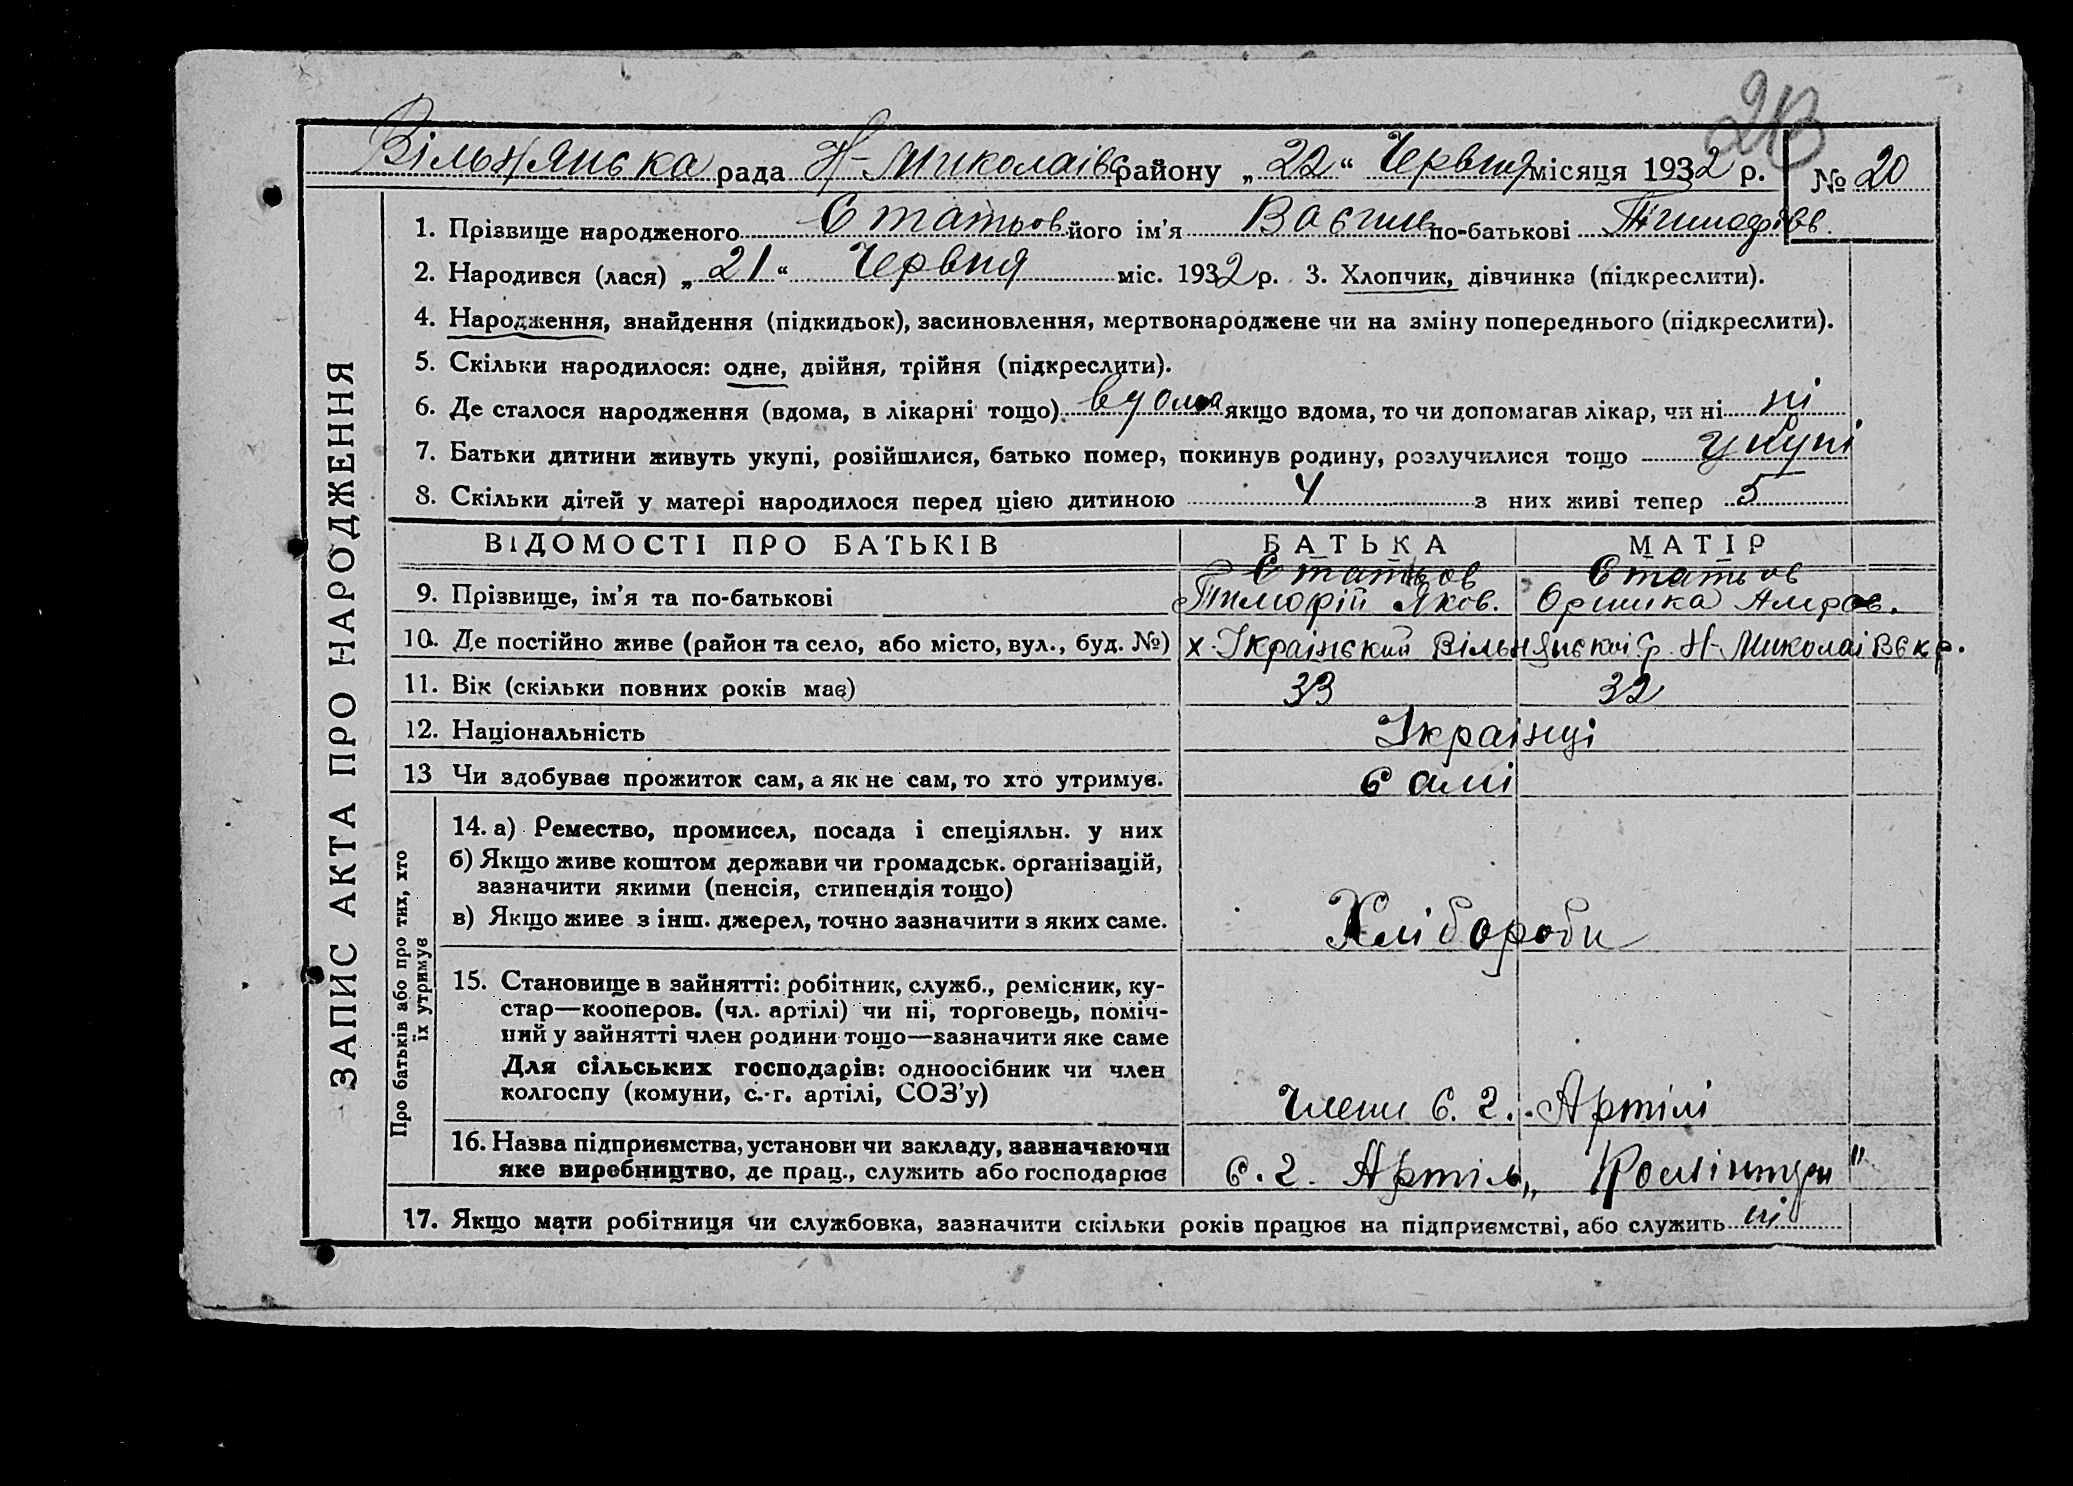 28
Вільнянська рада Н-Миколаівс району „22“ Червня місяця 1932 р. № 20
ЗАПИС АКТА ПРО НАРОДЖЕННЯ
1. Прізвище народженого Статьов його ім'я Василь по-батькові Тимофієв.
2. Народився (лася) „21“ Червня міс. 1932 р. 3. Хлопчик, дівчинка (підкреслити).
4. Народження, знайдення (підкидьок), засиновлення, мертвонароджене чи на зміну попереднього (підкреслити).
5. Скільки народилося: одне, двійня, трійня (підкреслити).
6. Де сталося народження (вдома, в лікарні тощо) вдома якщо вдома, то чи допомагав лікар, чи ні ні
7. Батьки дитини живуть укупі, розійшлися, батько помер, покинув родину, розлучилися тощо укупі
8. Скільки дітей у матері народилося перед цією дитиною 4 з них живі тепер 5
ВІДОМОСТІ ПРО БАТЬКІВ БАТЬКА МАТІР
Статьов Статьов
9. Прізвище, ім'я та по-батькові Тимофій Яков. Оришка
10. Де постійно живе (район та село, або місто, вул., буд. №) х. Украінский Вільнянскоі с/р. Н-Миколаівск р.
11. Вік (скільки повних років має) 33 32
12. Національність Украінці
13 Чи здобуває прожиток сам, а як не сам, то хто утримує. Самі
Про батьків або про тих, хто
їх утримує
14. а) Ремество, промисел, посада і спеціяльн. у них
б) Якщо живе коштом держави чи громадськ. організацій,
зазначити якими (пенсія, стипендія тощо)
в) Якщо живе з інш. джерел, точно зазначити з яких саме. Хлібороби
15. Становище в зайнятті: робітник, служб., ремісник, ку-
стар—кооперов. (чл. артілі) чи ні, торговець, поміч-
ний у зайнятті член родини тощо—зазначити яке саме
Для сільських господарів: одноосібник чи член
колгоспу (комуни, с.-г. артілі, СОЗ'у) Члени С. Г. Артілі
16. Назва підприємства, установи чи закладу, зазначаючи
яке виробництво, де прац., служить або господарює С. Г. Артіль „Комінтерн“
17. Якщо мати робітниця чи службовка, зазначити скільки років працює на підприємстві, або служить ні